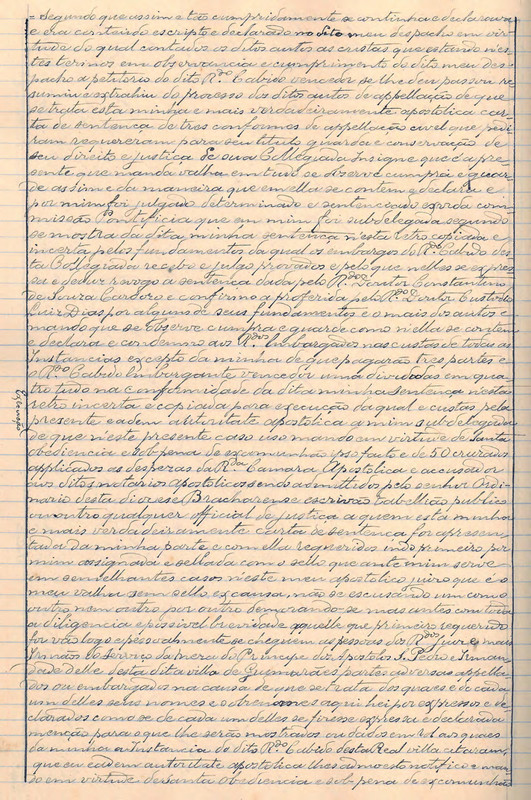 = Segundo que assim e tão cumpridamente se continha e declarava
e era conteúdo escripto e declarado no dito meu despacho em vir-
tude do qual contados os ditos autos as custas que estando n'es-
tes termos em observancia e cumprimento do dito meu des-
pacho a petitorio do dito R.do Cabido vencedor se lhe deu passou re-
sumiu e extrahiu do processo dos ditos autos de appellação de que
se trata esta minha e mais verdadeiramente apostolica car-
ta de sentença de tres conformes de appellação civel que pedi-
ram requereram para seu titulo guarda e conservação de
seu direito e justiça de sua Collegiada Insigne que é a pre-
sente que manda valha em tudo se observe cumpra e guar-
de assim e da maneira que em ella se contem e declara e
por mim foi julgado determinado e sentenceado exvi da com-
missão Pontificia que em mim foi subdelegada segundo
se mostra da dita minha sentença n'esta retro copiada e
incerta pelos fundamentos da qual os embargos do R.do Cabido des-
ta Collegiada recebo e julgo provados e pelo que nelles se expres-
sa e deduz revogo a sentença dada pelo R.do Doutor Constantino
de Souza Cardozo e confirmo a proferida pelo R.do Doutor Custodio
Luiz Dias por alguns de seus fundamentos e o mais dos autos e
mando que se observe cumpra e guarde como n'ella se contem
e declara e condemno aos R.dos Embargados nas custas de todas as
Instancias excepto da minha de que pagarão tres partes e
o R.do Cabido Embargante vencedor uma divididas em qua-
tro tudo na conformidade da dita minha sentença n'esta
retro incerta e copiada para execução da qual e custas pela
presente e adem autoritate apostolica a mim subdelegada
de que n'este presente caso uso mando em virtude de Santa
obediencia e sob pena de excomunhão ipso facto e de 50 cruzados
applicados as despezas da R.da Camara Apostolica e accusador
aos ditos notarios apostolicos sendo admittidos pelo senhor Ordi-
nario desta diocese Bracharense escrivão tabellião publico
ou outro qualquer official de justiça a quem esta minha
e mais verdadeiramente carta de sentença for apresen-
tada da minha parte e com ella requeridos indo primeiro por
mim assignada e sellada com o sello que ante mim serve
em semelhantes casos n'este meu apostolico juizo que é o
meu valha sem sello ex causa, não se escusando um com o
outro, nem outro por outro demorando-se mas antes com toda
a diligencia e possivel brevidade aquelle que primeiro requerido
for vão logo e pessoalmente se cheguem as pessoas dos R.dos Juiz e mais
Irmãos do serviço da meza do Principe dos Apostolos S. Pedro e Irman-
dade delle desta dita villa de Guimarães partes adversas appella-
dos ou embargados na causa de que se trata dos quaes e de cada
um delles seus nomes e sobrenomes aqui hei por expressos e de-
clarados como se de cada um delles se fizesse expressa e declarada
menção para o que lhe serão mostrados ou dados em rol aos quaes
da minha a Instancia do dito R.do Cabido desta Real villa citaram,
que eu eadem autoritate apostolica lhes admoesto notifico e man-
do em virtude de santa obediencia e sob pena de excomunhão
Execução